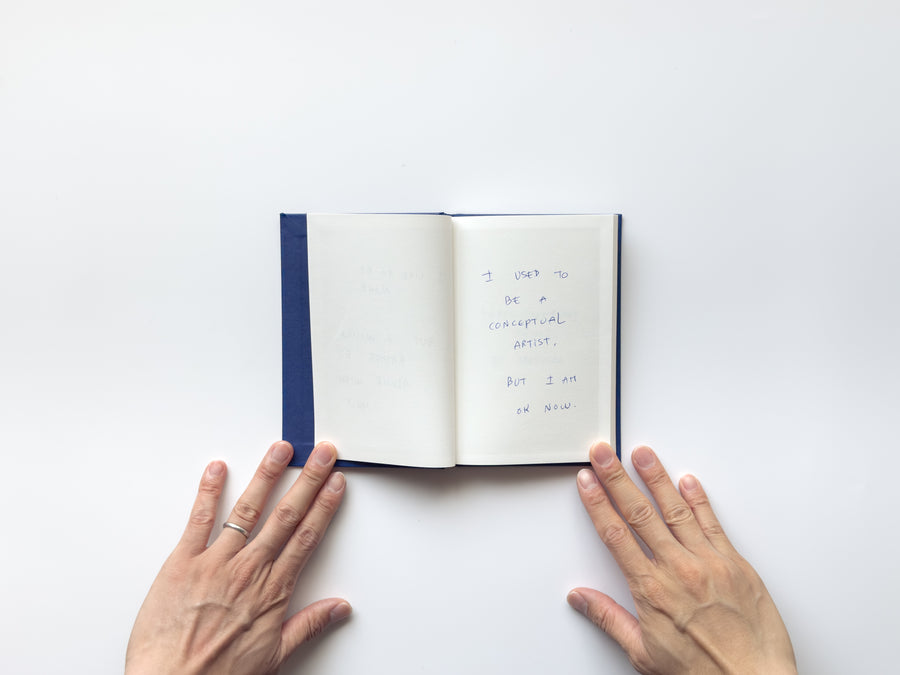 I USED TO
BE A
CONCEPTUAL
ARTIST.
BUT I AM
OK NOW.